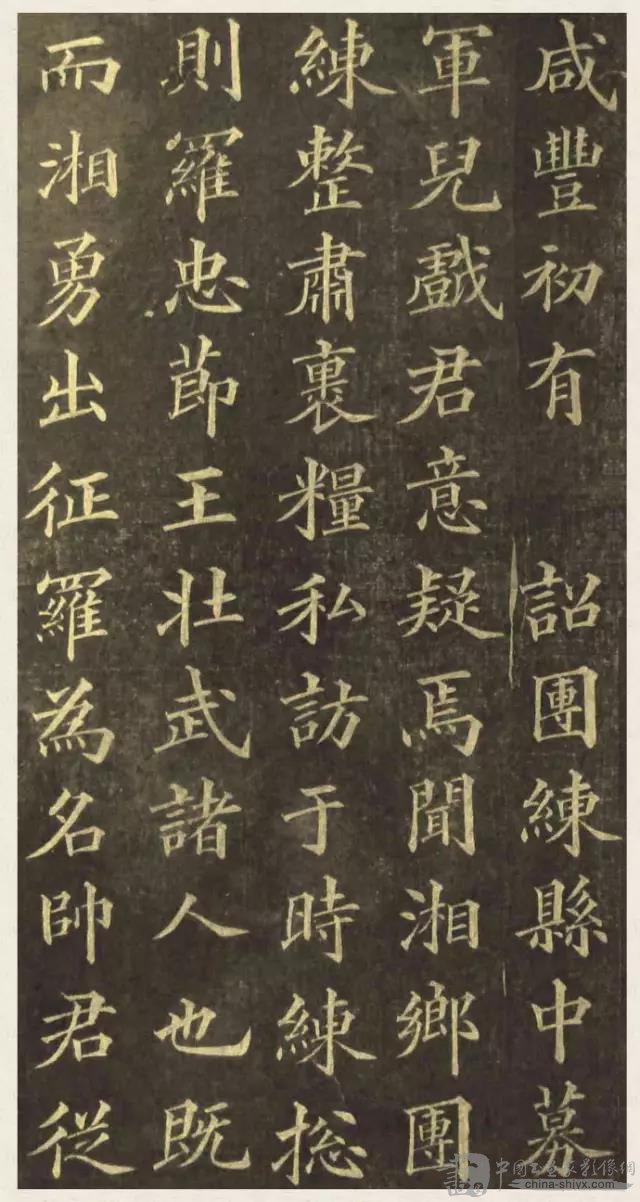 咸豐初有　詔團練縣中募
軍兒戲君意疑焉聞湘鄉團
練整肅裹糧私訪于時練捴
則羅忠節王壯武諸人也既
而湘勇出征羅為名帥君從
中国书画家影像網
china-shiyx.com